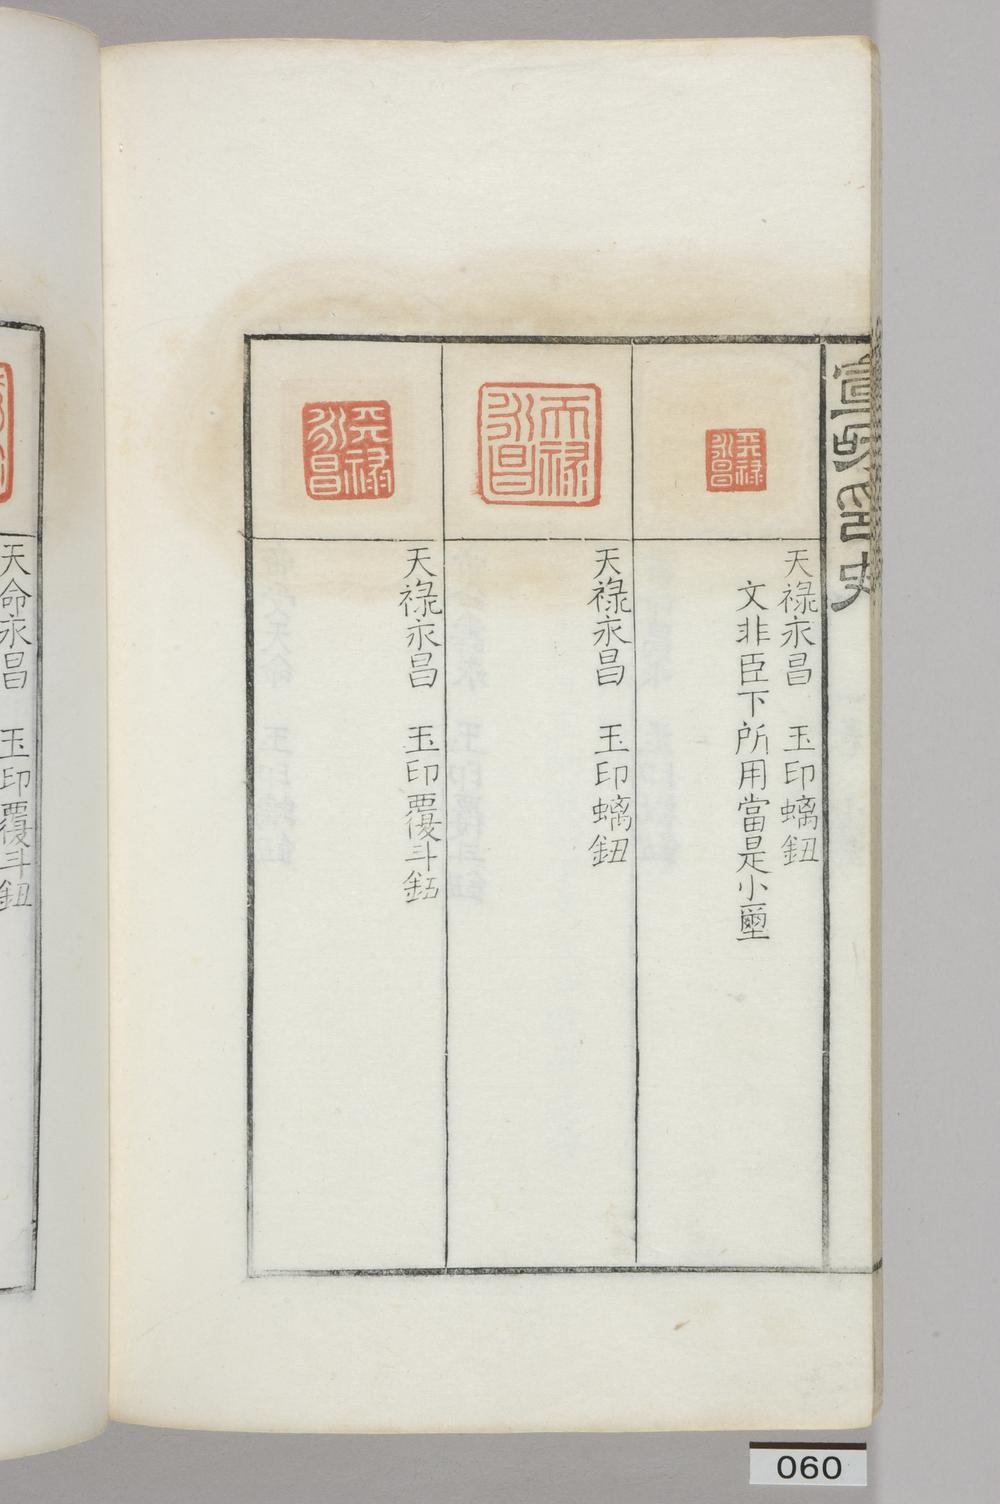 宣氏印史
天祿永昌
天祿永昌　玉印螭鈕
文非臣下所用當是小璽
天祿永昌
天祿永昌　玉印螭鈕
天祿永昌
天祿永昌　玉印覆斗鈕
天命永昌　玉印覆斗鈕
060